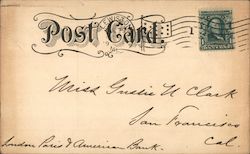 Post Card.
1
Miss Gussie U Clark
San Francisco
Cal
London Paris & American Bank.